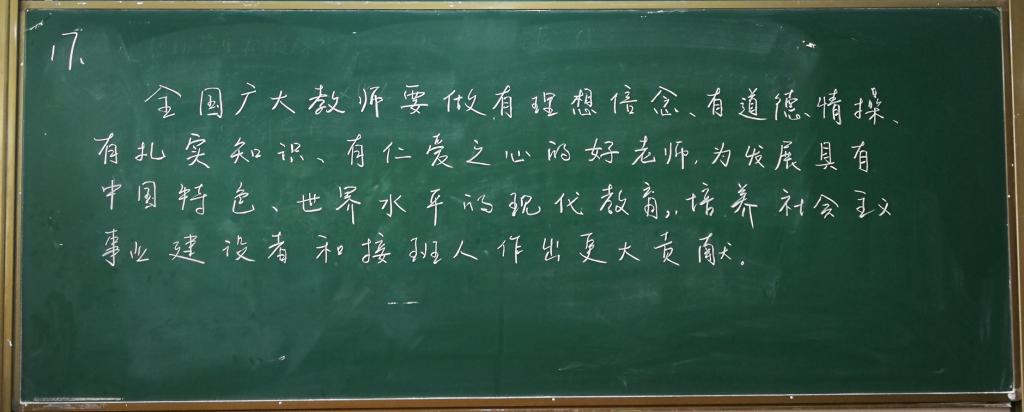 17、
全国广大教师要做有理想信念、有道德情操、
有扎实知识、有仁爱之心的好老师,为发展具有
中国特色、世界水平的现代教育,培养社会主义
事业建设者和接班人作出更大贡献。